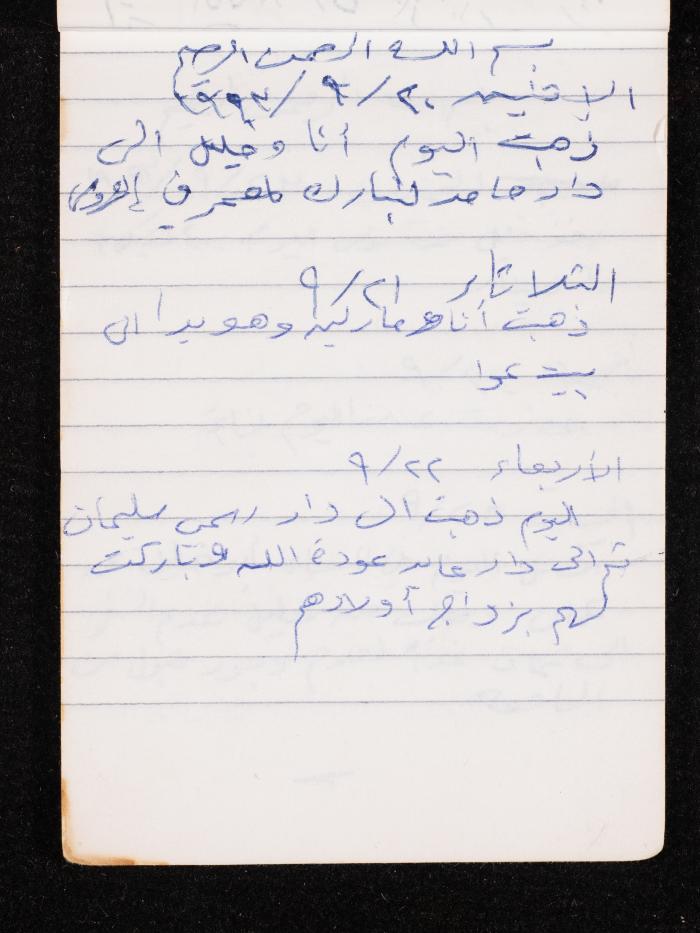 بسم الله الرحمن الرحيم
الاثنين ٢٠/٩/١٩٩٣
ذهبت اليوم أنا وخليل الى
دار حامد لنبارك لهم في
الثلاثاء ٢١/٩
ذهبت أنا وماركيه وهويدا الى
بيت عوا
الأربعاء ٢٢/٩
اليوم ذهبت الى دار رسمي سليمان
ثم الى دار عابد عودة الله وباركت
لهم بزواج أولادهم